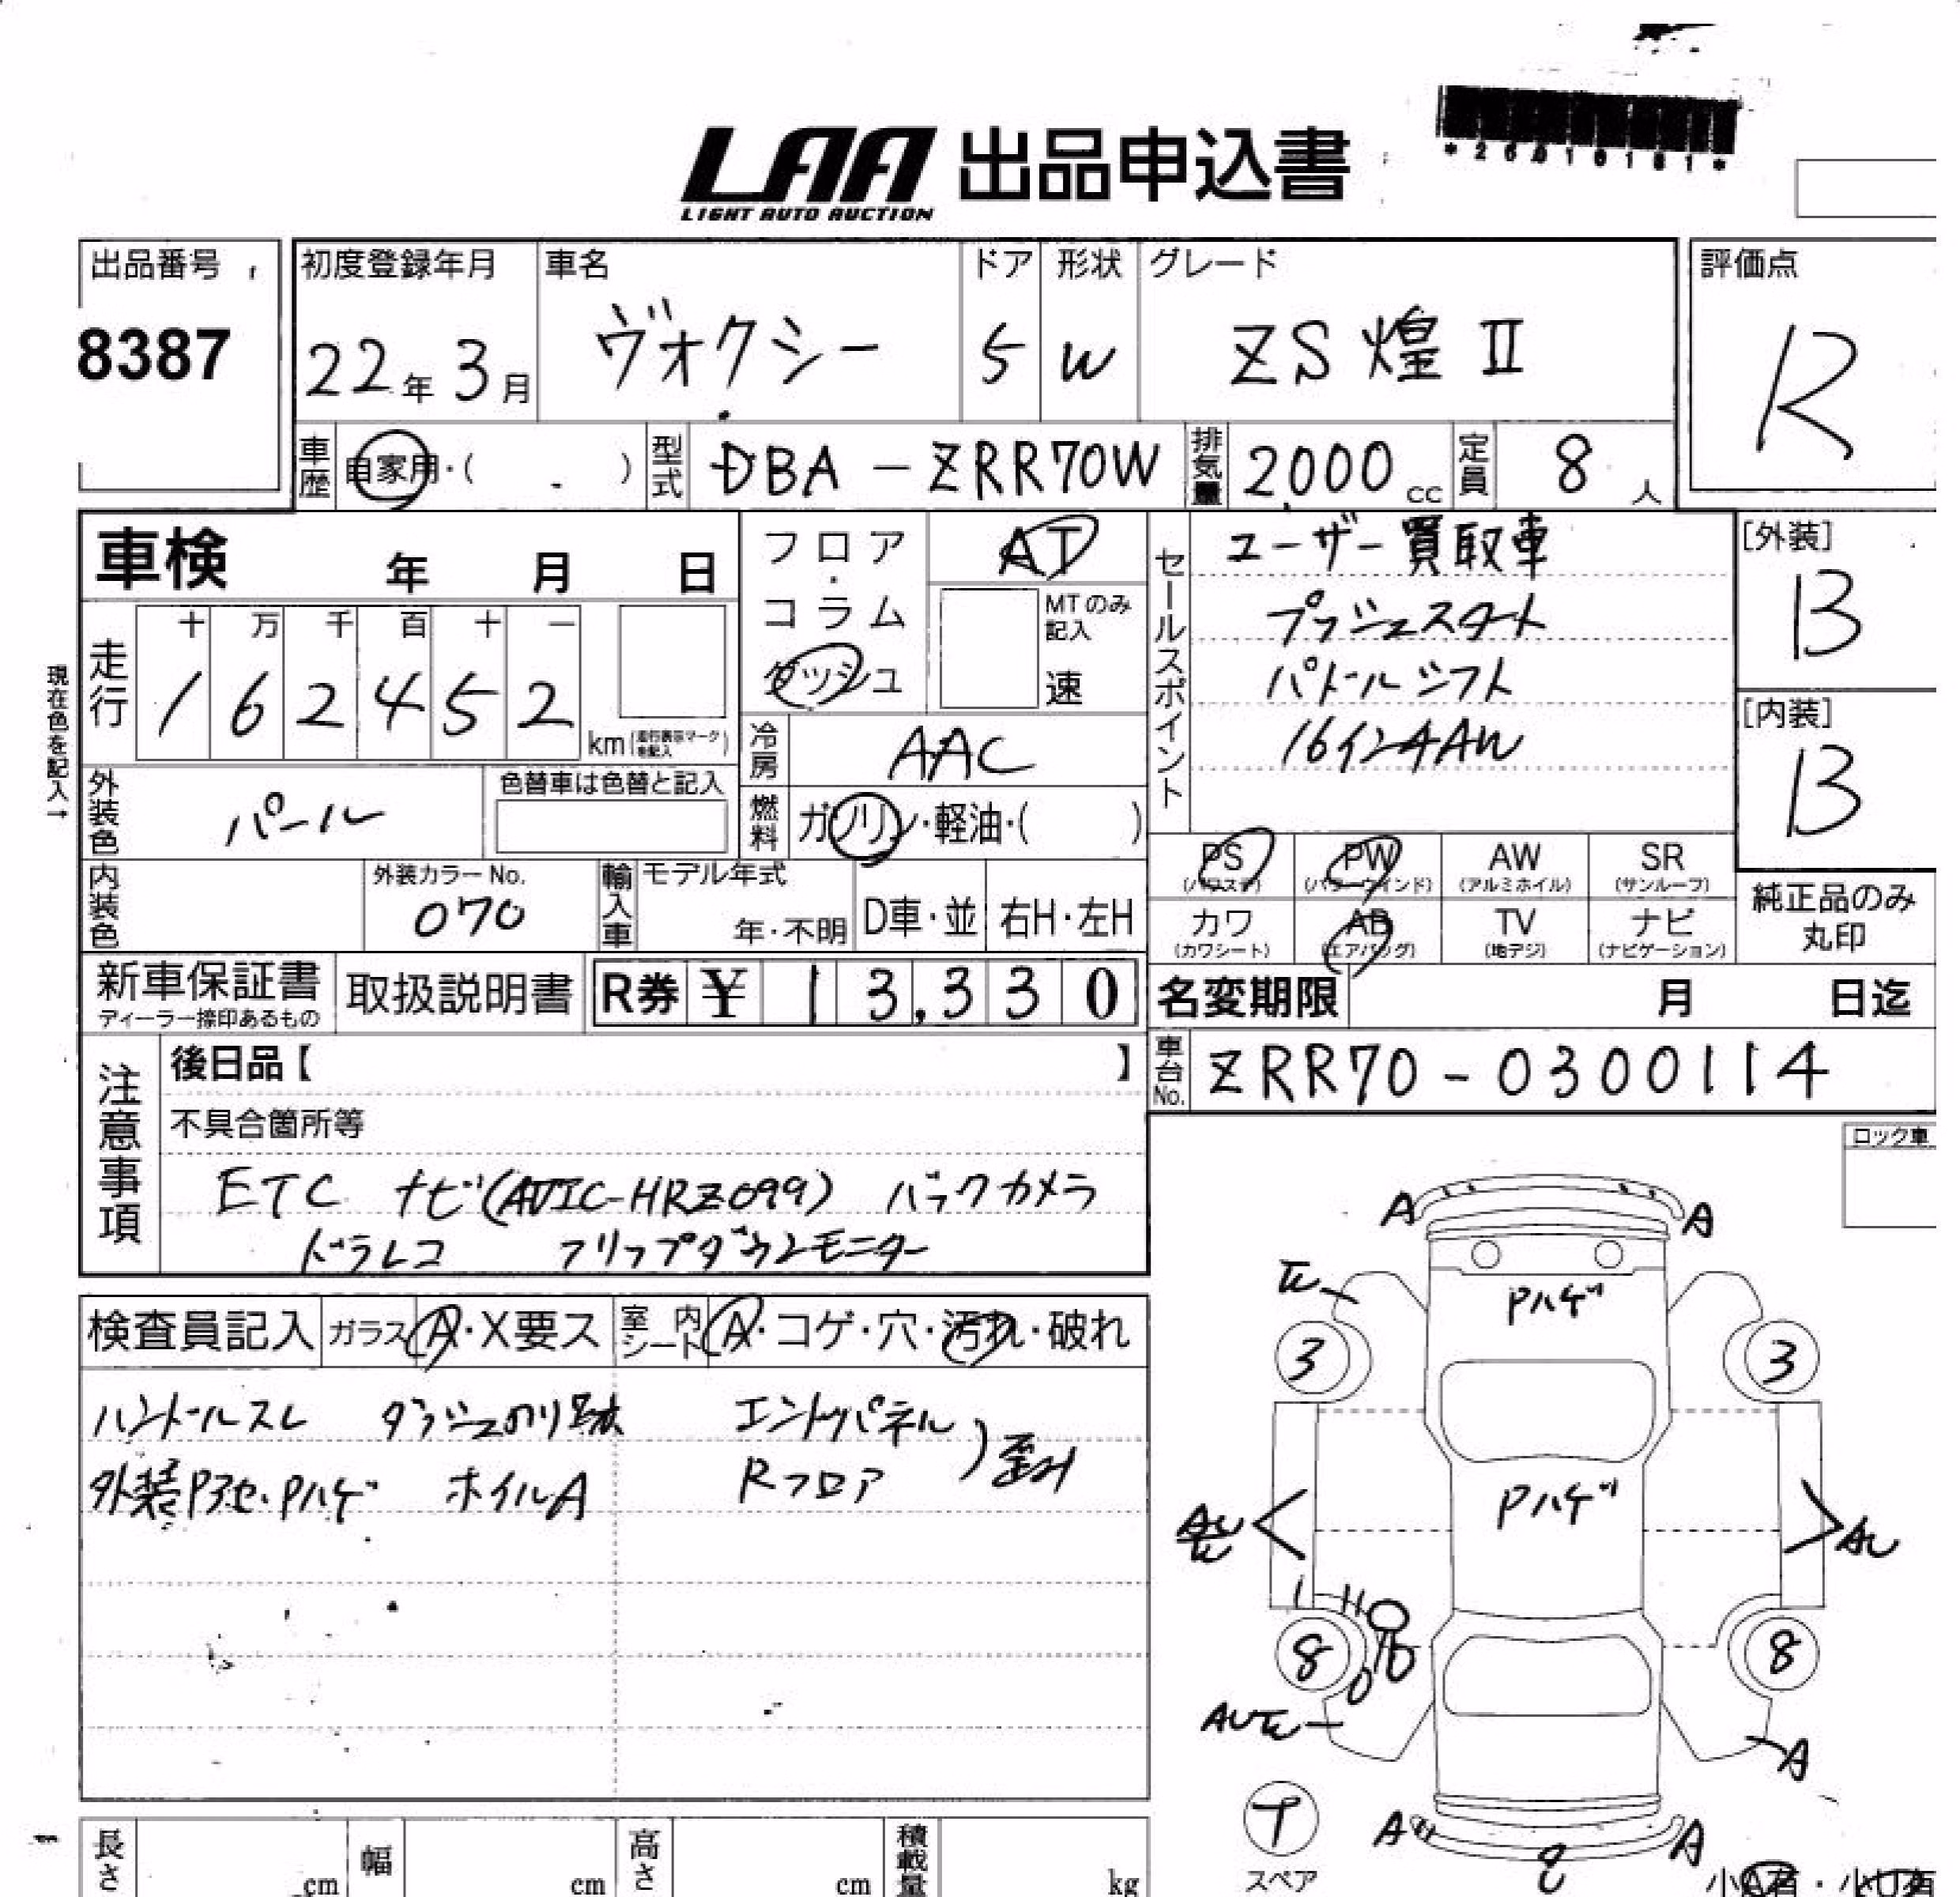 LAA 出品申込書
LIGHT AUTO AUCTION
*26010181*
出品番号
8387
初度登録年月
22年 3月
車名
ヴォクシー
ドア
5
形状
W
グレード
ZS 煌 II
評価点
R
車歴
自家用・( )
型式
DBA-ZRR70W
排気量
2,000 cc
定員
8 人
車検 年 月 日
現在色を記入→
走行
十 万 千 百 十 一
1 6 2 4 5 2
km(走行表示マークを記入)
フロア・コラム
ダッシュ
AT
MTのみ記入
速
冷房
AAC
燃料
ガソリン・軽油・( )
セールスポイント
ユーザー買取車
プッシュスタート
パドルシフト
16インチAW
[外装]
B
[内装]
B
外装色
パール
色替車は色替と記入
内装色
外装カラーNo.
070
輸入車
モデル年式
年・不明
D車・並
右H・左H
PS (パワステ)
PW (パワーウインド)
AW (アルミホイル)
SR (サンルーフ)
カワ (カワシート)
AB (エアバッグ)
TV (地デジ)
ナビ (ナビゲーション)
純正品のみ
丸印
新車保証書
ディーラー捺印あるもの
取扱説明書
R券 ¥ 13,330
名変期限 月 日迄
車台No.
ZRR70-0300114
注意事項
後日品【 】
不具合箇所等
ETC ナビ(AVIC-HRZ099) バックカメラ
ドラレコ フリップダウンモニター
ロック車
検査員記入
ガラス A・X要ス
室内シート A・コゲ・穴・汚れ・破れ
ハンドルスレ ダッシュのり跡 エンドパネル
外装Pアセ・Pハゲ ホイルA Rフロア )歪み
A
A
Pハゲ
3
3
Pハゲ
AU
8
8
A
T
スペア
A
A
長さ cm
幅 cm
高さ cm
積載量 kg